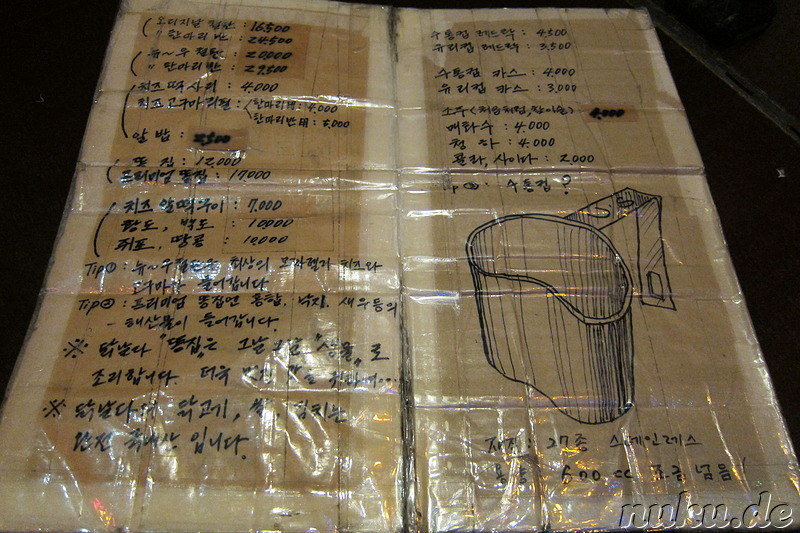 오리지날 닭반 : 16,500
" 한마리반 : 24,500
뉴~우 닭반 : 20,000
" 한마리반 : 29,500
치즈 떡사이 : 4,000
치즈고구마리필 : (한마리 : 4,000
한마리반 : 6,000
알밥 : 2,500
똥집 : 12,000
프리미엄 똥집 : 17,000
치즈 알떡 : 7,000
황도, 백도 : 10,000
쥐포, 땅콩 : 10,000
Tip① : 뉴~우 최상의 모짜렐라 치즈와
고구마가 들어갑니다.
Tip② : 프리미엄 똥집엔 홍합, 낙지, 새우등의
해산물이 들어갑니다.
※ 닭날다 "똥집"은 그날 그날 "생물"로
조리합니다. 더욱
※ 닭날다 닭고기, 쌀, 김치는
완전 국내산 입니다.
수통컵 레드락 : 4,500
유리컵 레드락 : 3,500
수통컵 카스 : 4,000
유리컵 카스 : 3,000
소주 (처음처럼, 참이슬) 4,000
매화수 : 4,000
청하 : 4,000
콜라, 사이다 : 2,000
Tip③ : 수통컵 ?
재질 : 27종 스테인레스
용량 600cc 조금 넘음!
nuku.de